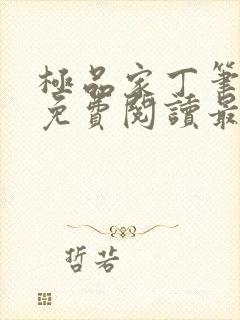 極品家丁筆
免費閱讀最
哲芸